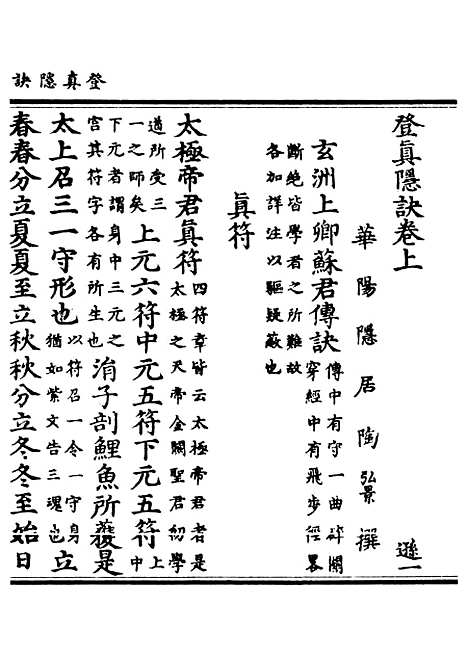 登真隱訣
登真隱訣卷上　遜一
華陽隱居陶弘景撰
玄洲上卿蘇君傳訣傳中有守一曲碎闕穿經中有飛步徑畧
斷絶皆學者之所難故各加詳注以驅疑蔽也
真符
太極帝君真符四符章皆云太極帝君者是太極之天帝金闕聖君初學
道所受三一之師矣上元六符中元五符下元五符上中
下元者謂身中三元之宫其符字各有所生也涓子剖鯉魚所獲是
太上召三一守形也以符召一令一守身猶如紫文告三魂也立
春春分立夏夏至立秋秋分立冬冬至始日